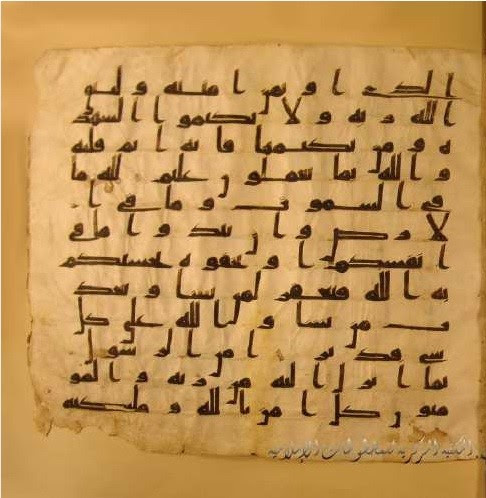 الذي اوتمن امنته وليتق
الله ربه ولا تكتموا الشهد
ة ومن يكتمها فانه اثم قلبه
والله بما تعملون عليم لله ما
في السموت وما في ا
لارض وان تبدوا ما في
انفسكم او تخفوه يحسبكم
به الله فيغفر لمن يشا ويعذ
ب من يشا والله على كل
شي قدير امن الرسول
بما انزل اليه من ربه والمو
منون كل امن بالله ومليكته
المكتبة المركزية للمخطوطات الإسلامية